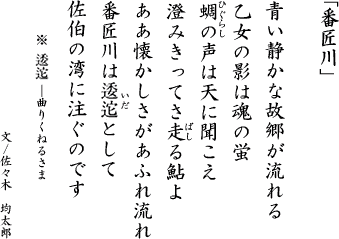 「番匠川」
青い静かな故郷が流れる
乙女の影は魂の蛍
蜩の声は天に聞こえ
澄みきってさ走る鮎よ
ああ懐かしさがあふれ流れ
番匠川は逶迤として
佐伯の湾に注ぐのです
※ 逶迤―曲りくねるさま
文/佐々木 均太郎